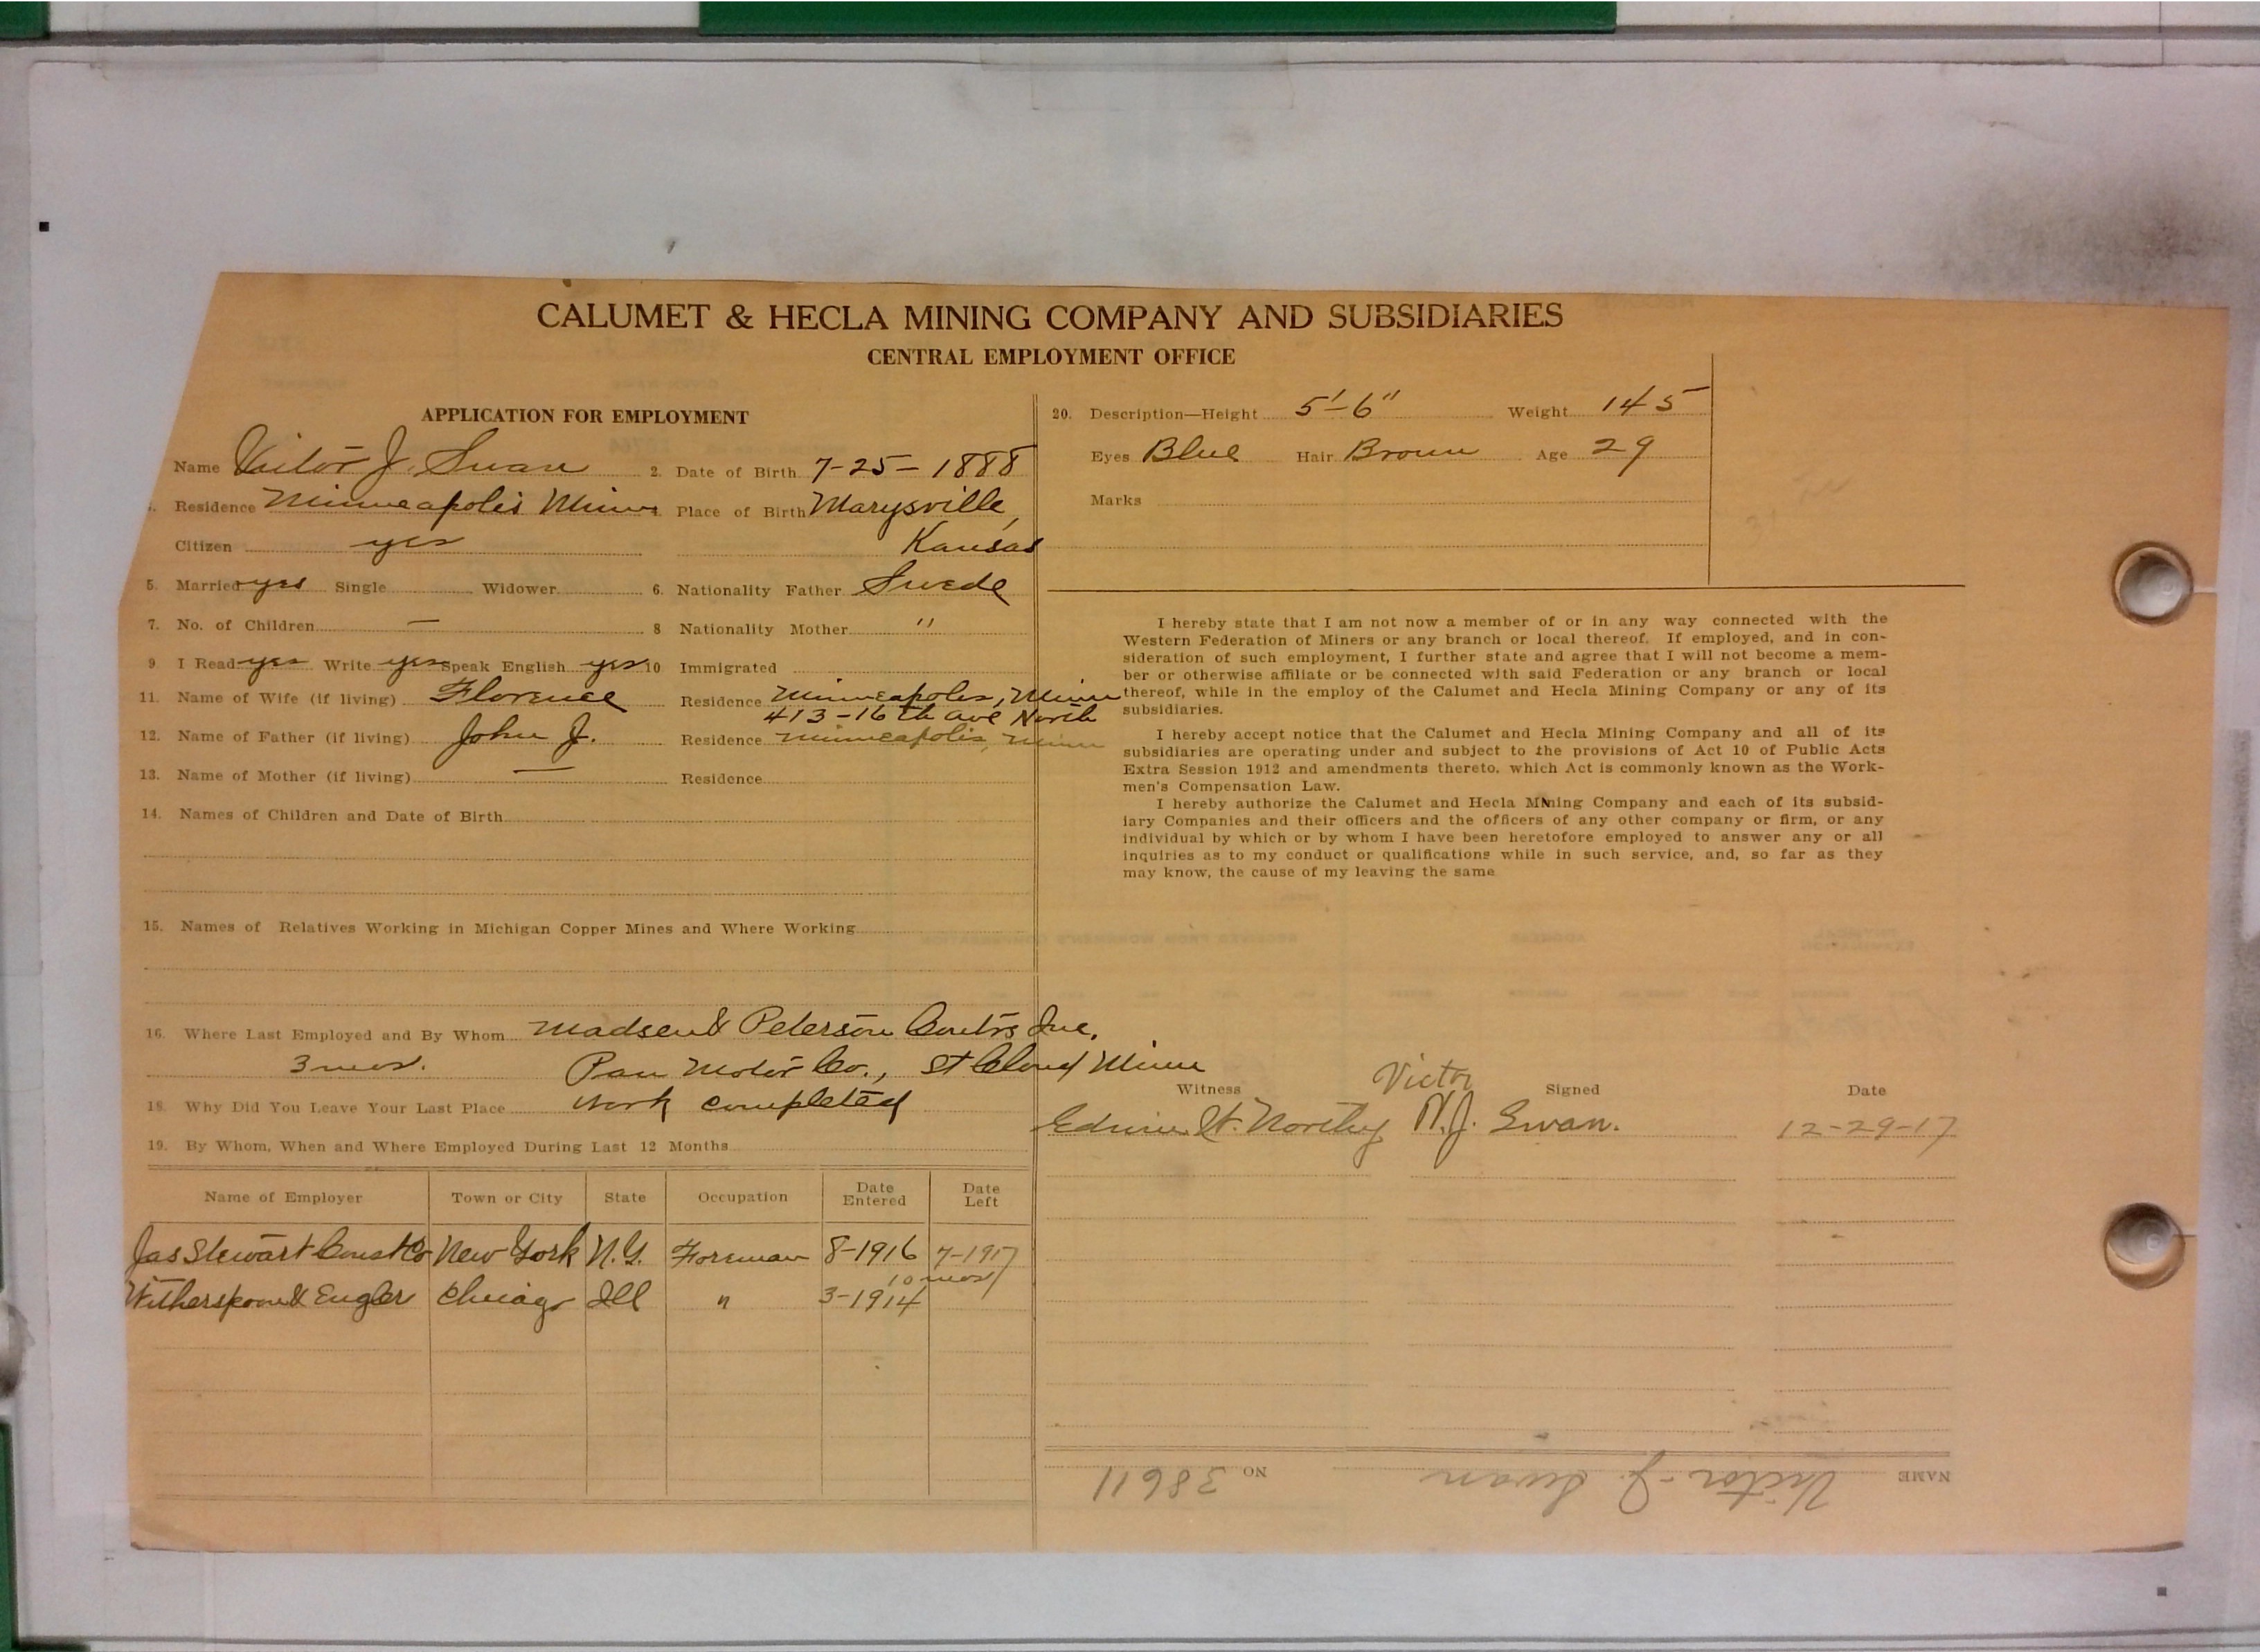 CALUMET & HECLA MINING COMPANY AND SUBSIDIARIES
CENTRAL EMPLOYMENT OFFICE
APPLICATION FOR EMPLOYMENT
Name Victor J. Swan 2. Date of Birth 7-25-1888
Residence Minneapolis Minn 4. Place of Birth Marysville,
Citizen yes Kansas
5. Married yes Single Widower 6. Nationality Father Swede
7. No. of Children — 8 Nationality Mother "
9 I Read yes Write yes Speak English yes 10 Immigrated
11. Name of Wife (if living) Florence Residence Minneapolis, Minn
413-16th Ave North
12. Name of Father (if living) John J. Residence Minneapolis, Minn
13. Name of Mother (if living) — Residence
14. Names of Children and Date of Birth
15. Names of Relatives Working in Michigan Copper Mines and Where Working
16. Where Last Employed and By Whom Madsen & Peterson Contrs Inc.
3 mos. Pan Motor Co., St Cloud Minn
18. Why Did You Leave Your Last Place work completed
19. By Whom, When and Where Employed During Last 12 Months
Name of Employer Town or City State Occupation Date Entered Date Left
Jas Stewart Const Co New York N.Y. Foreman 8-1916 7-1917
10 mos
Witherspoon & Engler Chicago Ill " 3-1914
20. Description—Height 5'-6" Weight 145
Eyes Blue Hair Brown Age 29
Marks
I hereby state that I am not now a member of or in any way connected with the
Western Federation of Miners or any branch or local thereof. If employed, and in con-
sideration of such employment, I further state and agree that I will not become a mem-
ber or otherwise affiliate or be connected with said Federation or any branch or local
thereof, while in the employ of the Calumet and Hecla Mining Company or any of its
subsidiaries.
I hereby accept notice that the Calumet and Hecla Mining Company and all of its
subsidiaries are operating under and subject to the provisions of Act 10 of Public Acts
Extra Session 1912 and amendments thereto, which Act is commonly known as the Work-
men's Compensation Law.
I hereby authorize the Calumet and Hecla Mining Company and each of its subsid-
iary Companies and their officers and the officers of any other company or firm, or any
individual by which or by whom I have been heretofore employed to answer any or all
inquiries as to my conduct or qualifications while in such service, and, so far as they
may know, the cause of my leaving the same
Witness Signed Date
Victor
Edwin W. Northey V.J. Swan. 12-29-17
NAME Victor J. Swan NO 38611